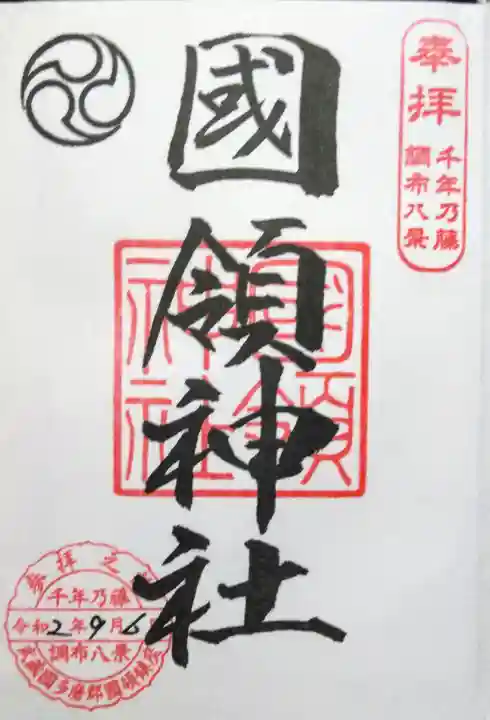 奉拝
千年乃藤
調布八景
國領神社
國領
神社
参拝之
千年乃藤
令和2年9月6
調布八景
武蔵國多磨郡國領